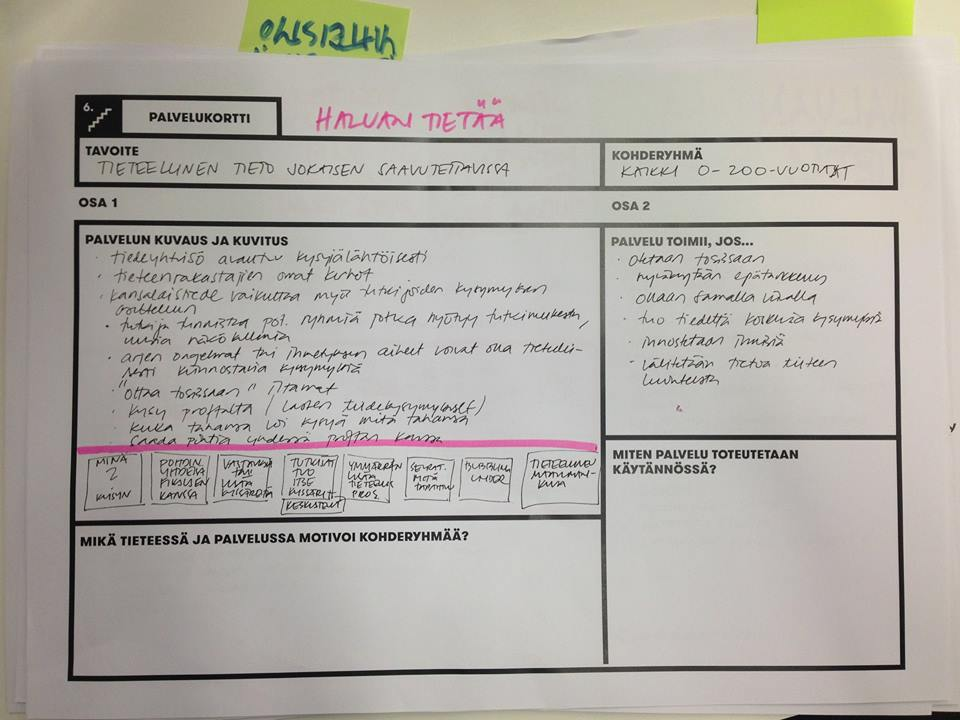 6.
PALVELUKORTTI
HALUAN TIETÄÄ
TAVOITE
TIETEELLINEN TIETO JOKAISEN SAAVUTETTAVISSA
KOHDERYHMÄ
KAIKKI 0-200-VUOTIAAT
OSA 1
OSA 2
PALVELUN KUVAUS JA KUVITUS
· tiedeyhteisö avautuu kysyjälähtöisesti
· tieteenrakastajien omat kerhot
· kansalaistiede vaikuttaa myös tutkijoiden kysymyksen
asetteluun
· tutkija tunnistaa pot. ryhmiä jotka hyötyy tutkimuksesta,
uusia näkökulmia
· arjen ongelmat tai ihmetyksen aiheet voivat olla tieteelli-
sesti kiinnostavia kysymyksiä
· "ottaa tosissaan" iltamat
· kysy proffalta (lasten tiedekysymykset)
· kuka tahansa voi kysyä mitä tahansa
· saada pitiä yhdessä proffan kanssa
MINÄ
KYSYN
POHDIN
YHDESSÄ
KANSSA
VASTAUKSIA
TAI
LISÄÄ
TUTKIJAT
TUO
ITSE
KESKUSTELUT
YMMÄRRÄN
TIETEELLIS
PROS.
SEURAT.
MITÄ
TAPAHTUU
BUBBLING
UNDER
TIETEELLINEN
MAAILMAN-
KUVA
PALVELU TOIMII, JOS...
· otetaan tosissaan
· hyväksytään epätarkkuus
· ollaan samalla viivalla
· tuo tiedettä koskevia kysymyksiä
· innostetaan ihmisiä
· välitetään tietoa tieteen
luonteesta
MITEN PALVELU TOTEUTETAAN
KÄYTÄNNÖSSÄ?
MIKÄ TIETEESSÄ JA PALVELUSSA MOTIVOI KOHDERYHMÄÄ?